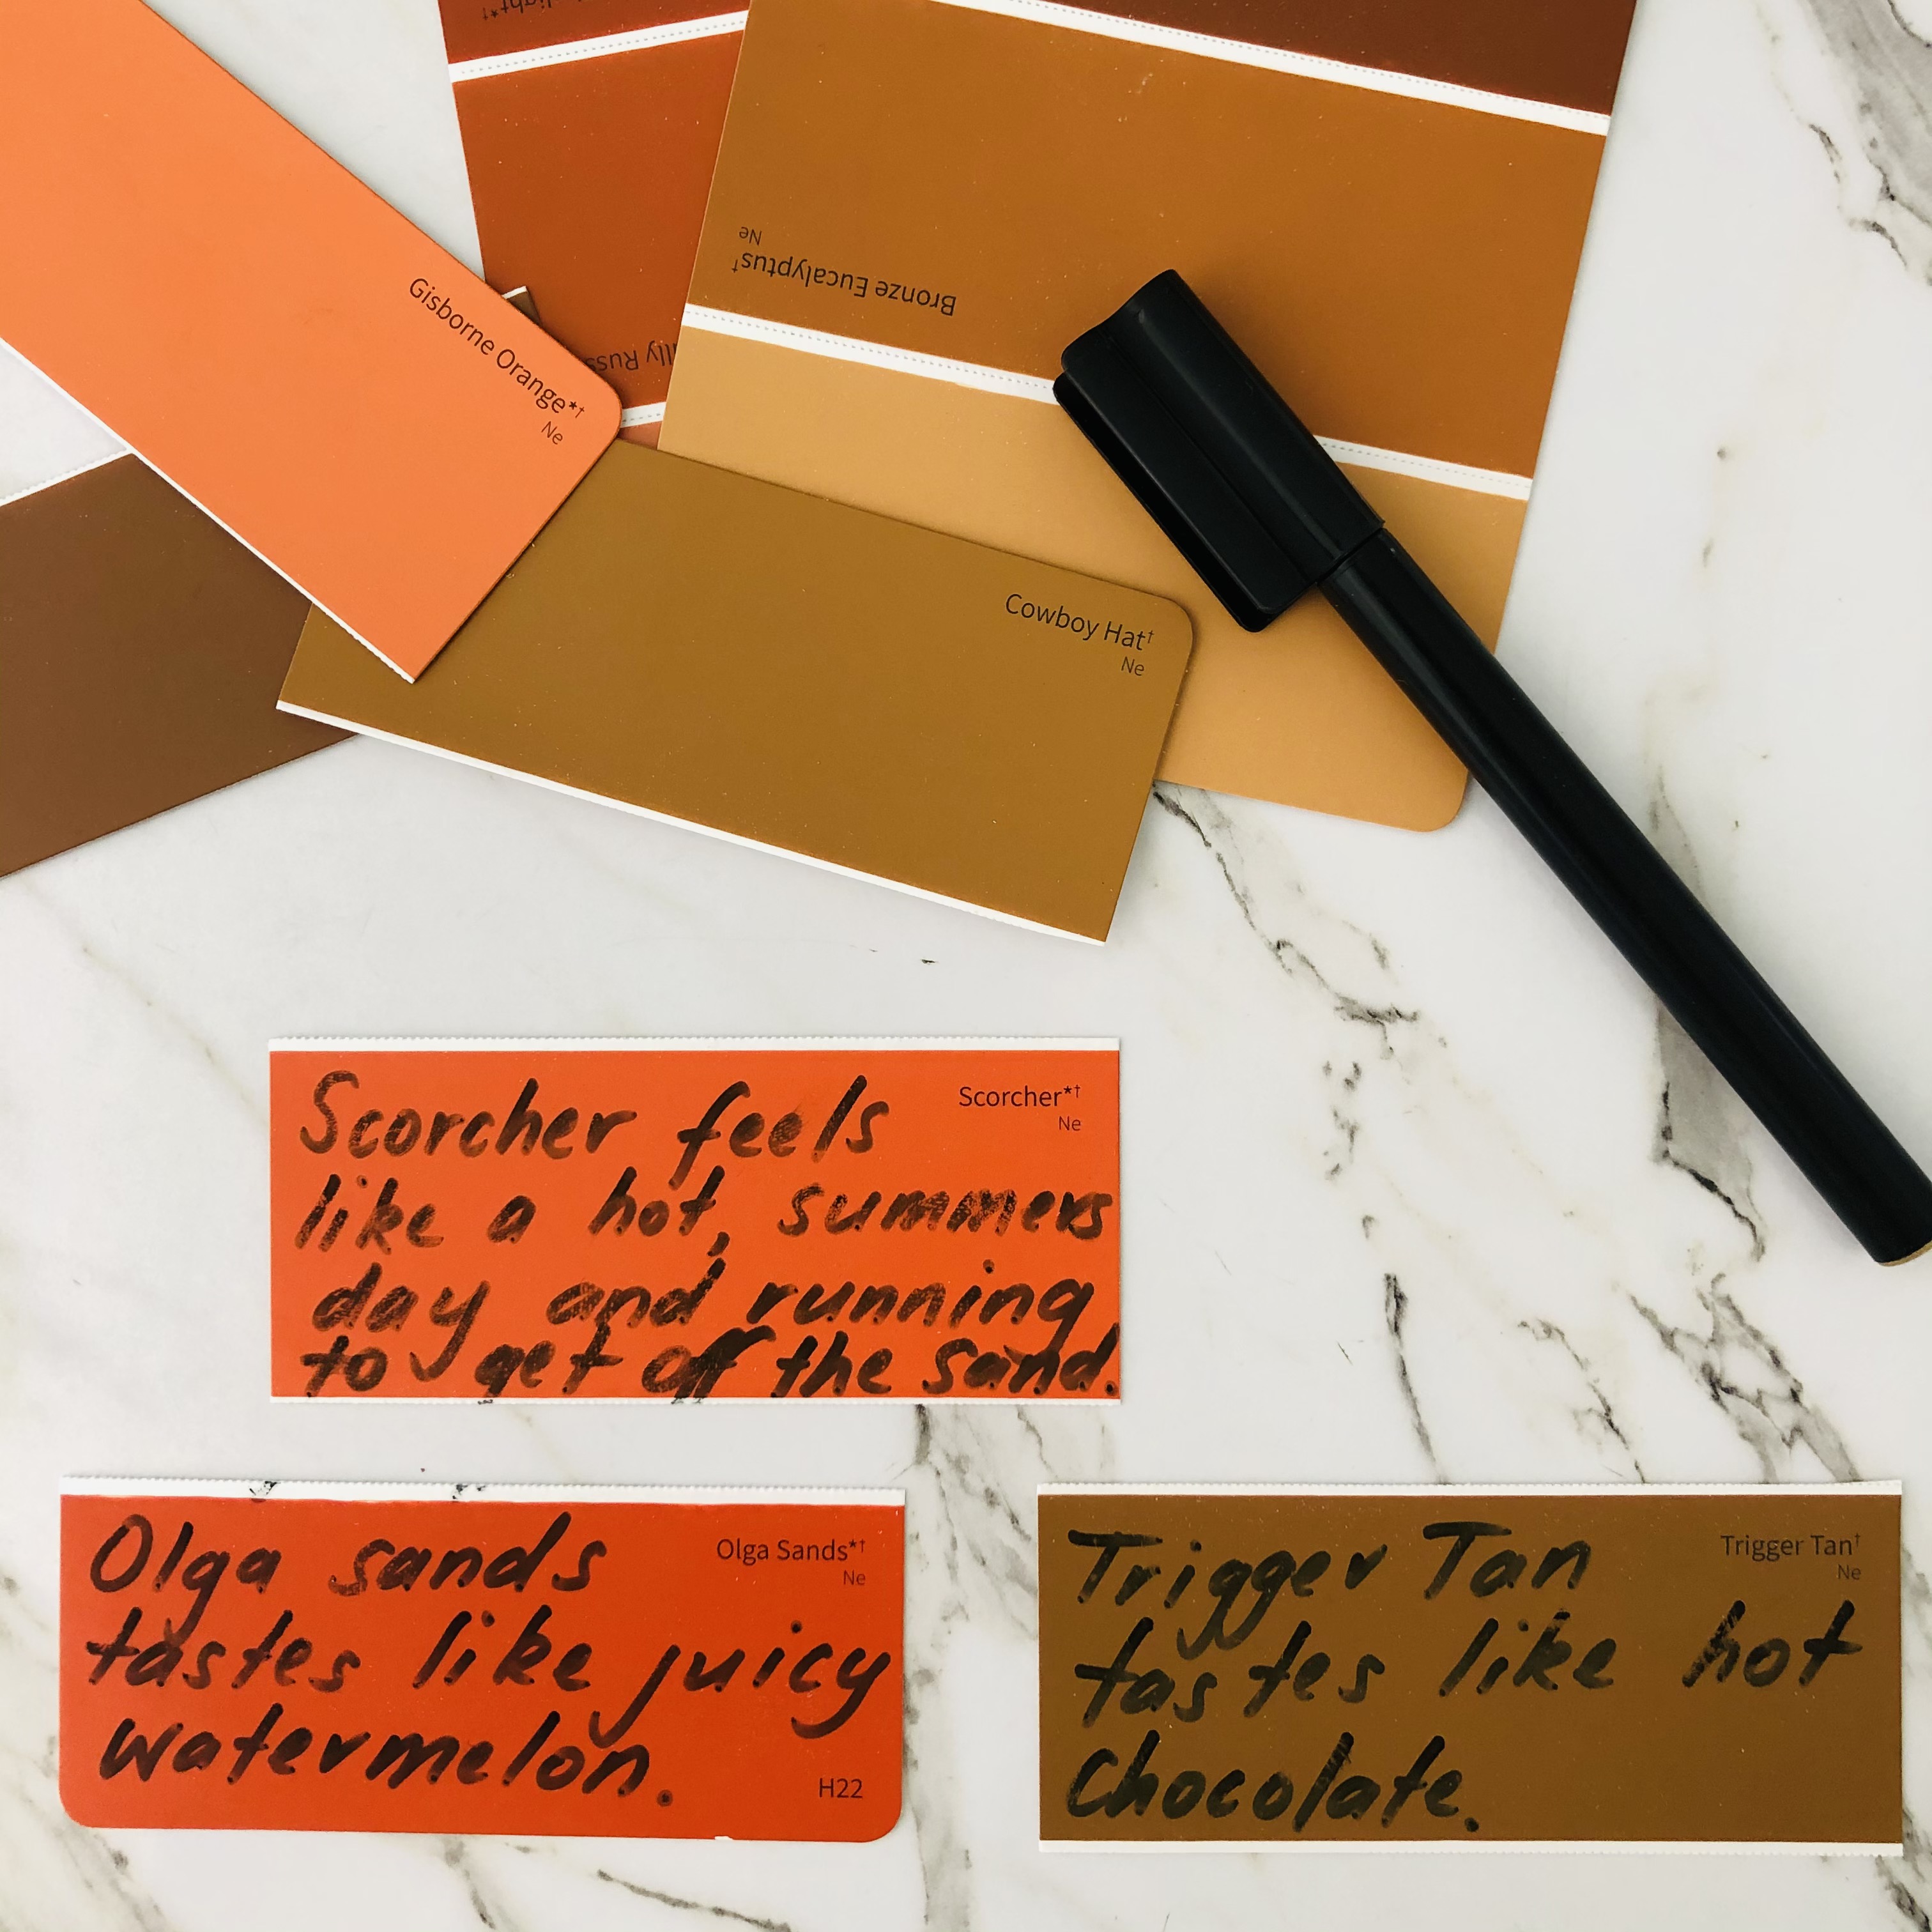 Gisborne Orange*†
Ne
Bronze Eucalyptus†
Ne
Cowboy Hat†
Ne
Scorcher*†
Ne
Scorcher feels
like a hot, summers
day and running
to get off the sand.
Olga Sands*†
Ne
Olga sands
tastes like juicy
watermelon.
H22
Trigger Tan†
Ne
Trigger Tan
tastes like hot
chocolate.